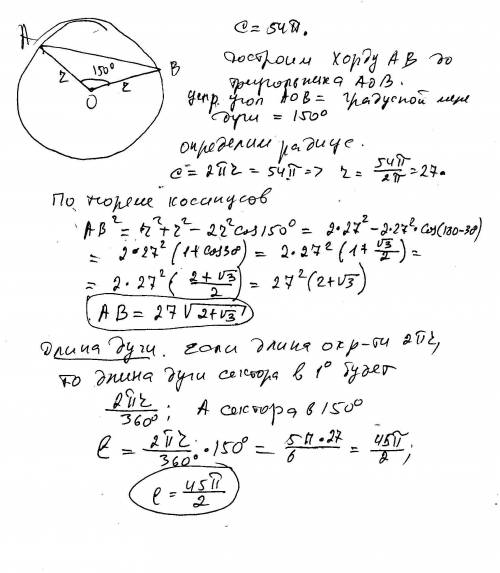 C = 54π.
A
B
150°
r
r
O
построим хорду AB до
треугольника AOB.
центр. угол AOB = градусной мере
дуги = 150°
определим радиус.
C = 2πr = 54π => r = 54π/2π = 27.
По теореме косинусов
AB² = r² + r² - 2r² cos 150° = 2·27² - 2·27²·cos(180-30)
= 2·27² (1 + cos30) = 2·27² (1 + √3/2) =
= 2·27² (2+√3/2) = 27² (2+√3)
AB = 27 √2+√3
Длина дуги. Если длина окр-ти 2πr,
то длина дуги сектора в 1° будет
2πr/360°; А сектора в 150°
ℓ = 2πr/360° · 150° = 5π·27/6 = 45π/2;
ℓ = 45π/2